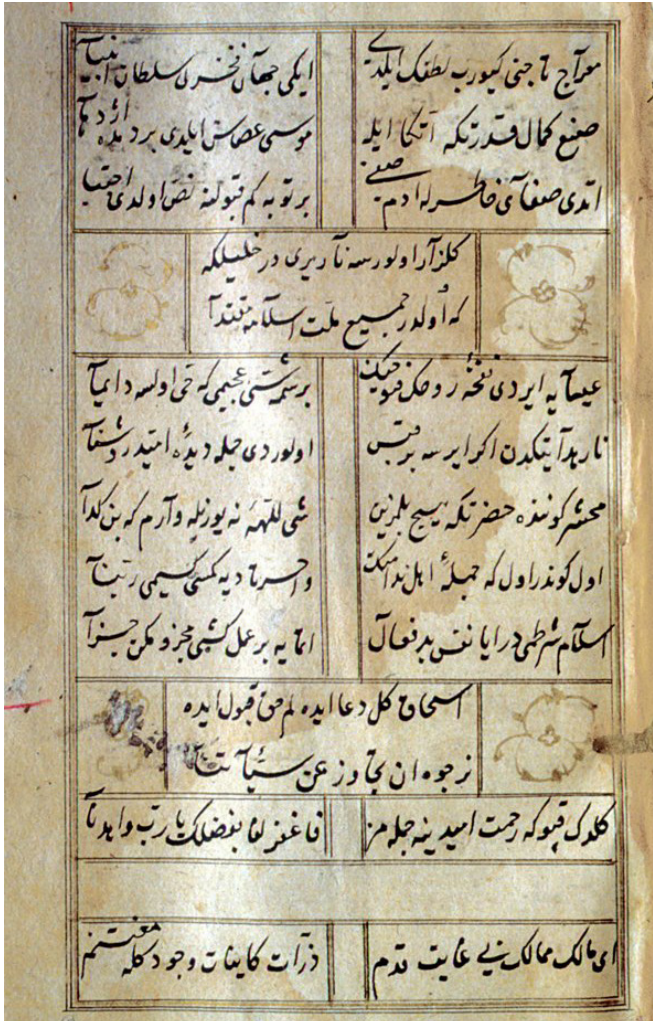 معراج تاجنی کیورب لطفک ایلدی ایکی جهان فخرن سلطان انبیا
صنع کمال قدرتکه آنکا ایله موسی عصاسن ایلدی برده اژدها
اتدی صفا آنی خاطر له ادم صفی بر توبه کم قبولنه نص اولدی اجتبا
کلزار اولورسه نار یری در خلیلکه
که اولدر جمیع ملت اسلامه مقتدا
عیسایه ایردی نفخهٔ روحک برشمه که حی اولسه دائما
نار اکر ایرسه برقبس اولوردی جمله دیده
محشر کوننده حضرتکه هیچ بلمزین شی للّٰه نه یوزیله وارم که بن کدا
اول کوندر اول که جملهٔ اهل ندامت واحسرتا دیه کمسی کیمی ربنا
اسلام شرطمی در ایا نفس بد فعال اتمایه بر عمل
اسحاق کل دعا ایده لم حق قبول ایده
نرجوه ان تجاوز عن سیأتنا
کلدک قپوکه رحمت امیدینه جمله مز فاغفر لنا بفضلک یا رب واهدنا
ای مالک ممالک بی غایت قدم ذرات کاینات وجودکله مغتنم